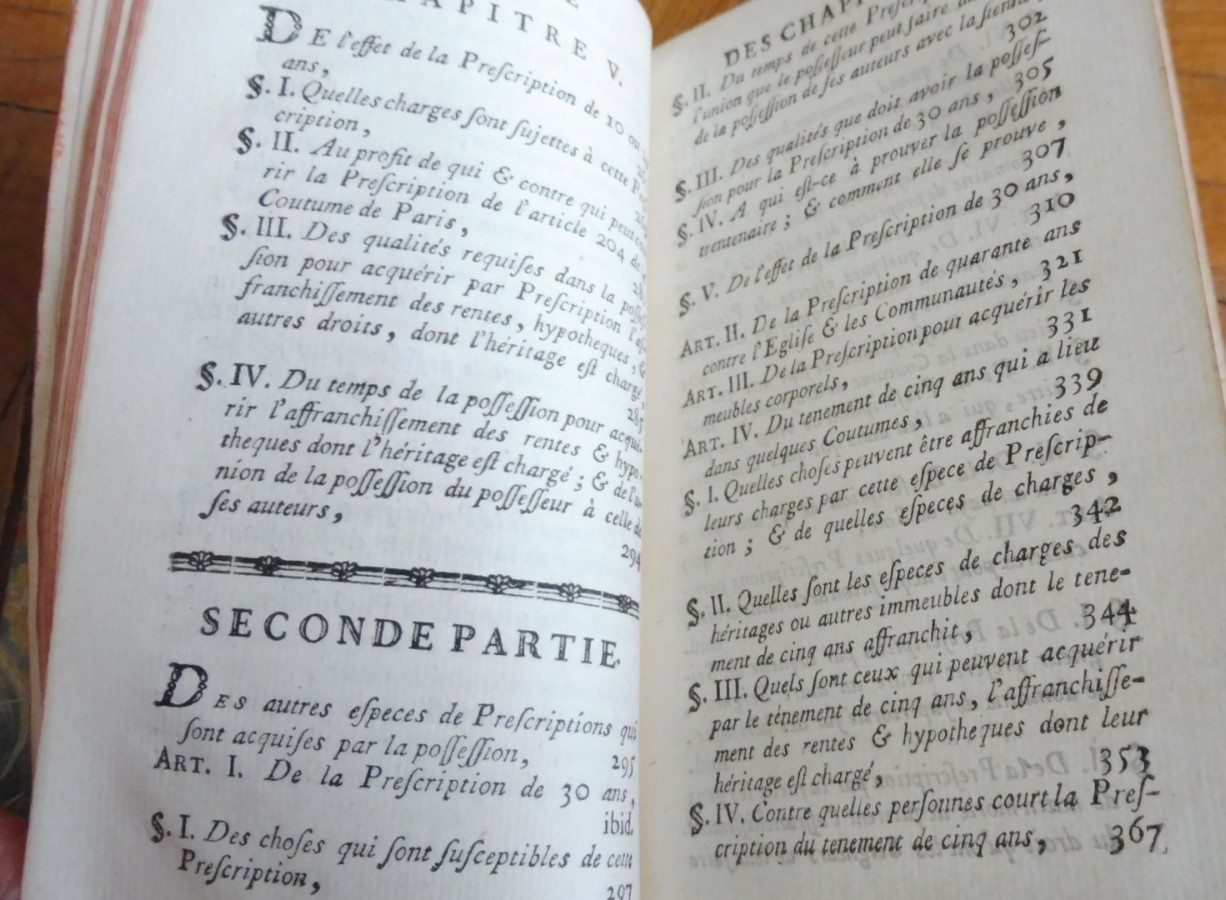 CHAPITRE V.
DE l'effet de la Preſcription de 10 ou
ans,
§. I. Quelles charges ſont ſujettes à cette
cription,
§. II. Au profit de qui & contre qui peut
rir la Preſcription de l'article 204 de
Coutume de Paris,
§. III. Des qualités requiſes dans la
ſion pour acquérir par Preſcription
franchiſſement des rentes, hypotheques,
autres droits, dont l'héritage eſt chargé,
285
§. IV. Du temps de la poſſeſſion pour acqué-
rir l'affranchiſſement des rentes & hypo-
theques dont l'héritage eſt chargé; & de l'u-
nion de la poſſeſſion du poſſeſſeur à celle de
ſes auteurs,
294
SECONDE PARTIE.
DES autres eſpeces de Preſcriptions qui
ſont acquiſes par la poſſeſſion, 295
ART. I. De la Preſcription de 30 ans,
ibid.
§. I. Des choſes qui ſont ſuſceptibles de cette
Preſcription, 297
DES CHAPI
§. II. Du temps de cette
l'union que le poſſeſſeur peut faire
de la poſſeſſion de ſes auteurs avec la ſienne
302
§. III. Des qualités que doit avoir la poſſeſ-
ſion pour la Preſcription de 30 ans, 305
§. IV. A qui eſt-ce à prouver la poſſeſſion
trentenaire; & comment elle ſe prouve,
307
§. V. De l'effet de la Preſcription de 30 ans,
310
ART. II. De la Preſcription de quarante ans
contre l'Egliſe & les Communautés, 321
ART. III. De la Preſcription pour acquérir les
meubles corporels, 331
ART. IV. Du tenement de cinq ans qui a lieu
dans quelques Coutumes, 339
§. I. Quelles choſes peuvent être affranchies de
leurs charges par cette eſpece de Preſcrip-
tion; & de quelles eſpeces de charges,
342
§. II. Quelles ſont les eſpeces de charges des
héritages ou autres immeubles dont le tene-
ment de cinq ans affranchit, 344
§. III. Quels ſont ceux qui peuvent acquérir
par le ténement de cinq ans, l'affranchiſſe-
ment des rentes & hypotheques dont leur
héritage eſt chargé, 353
§. IV. Contre quelles perſonnes court la Preſ-
cription du tenement de cinq ans, 367